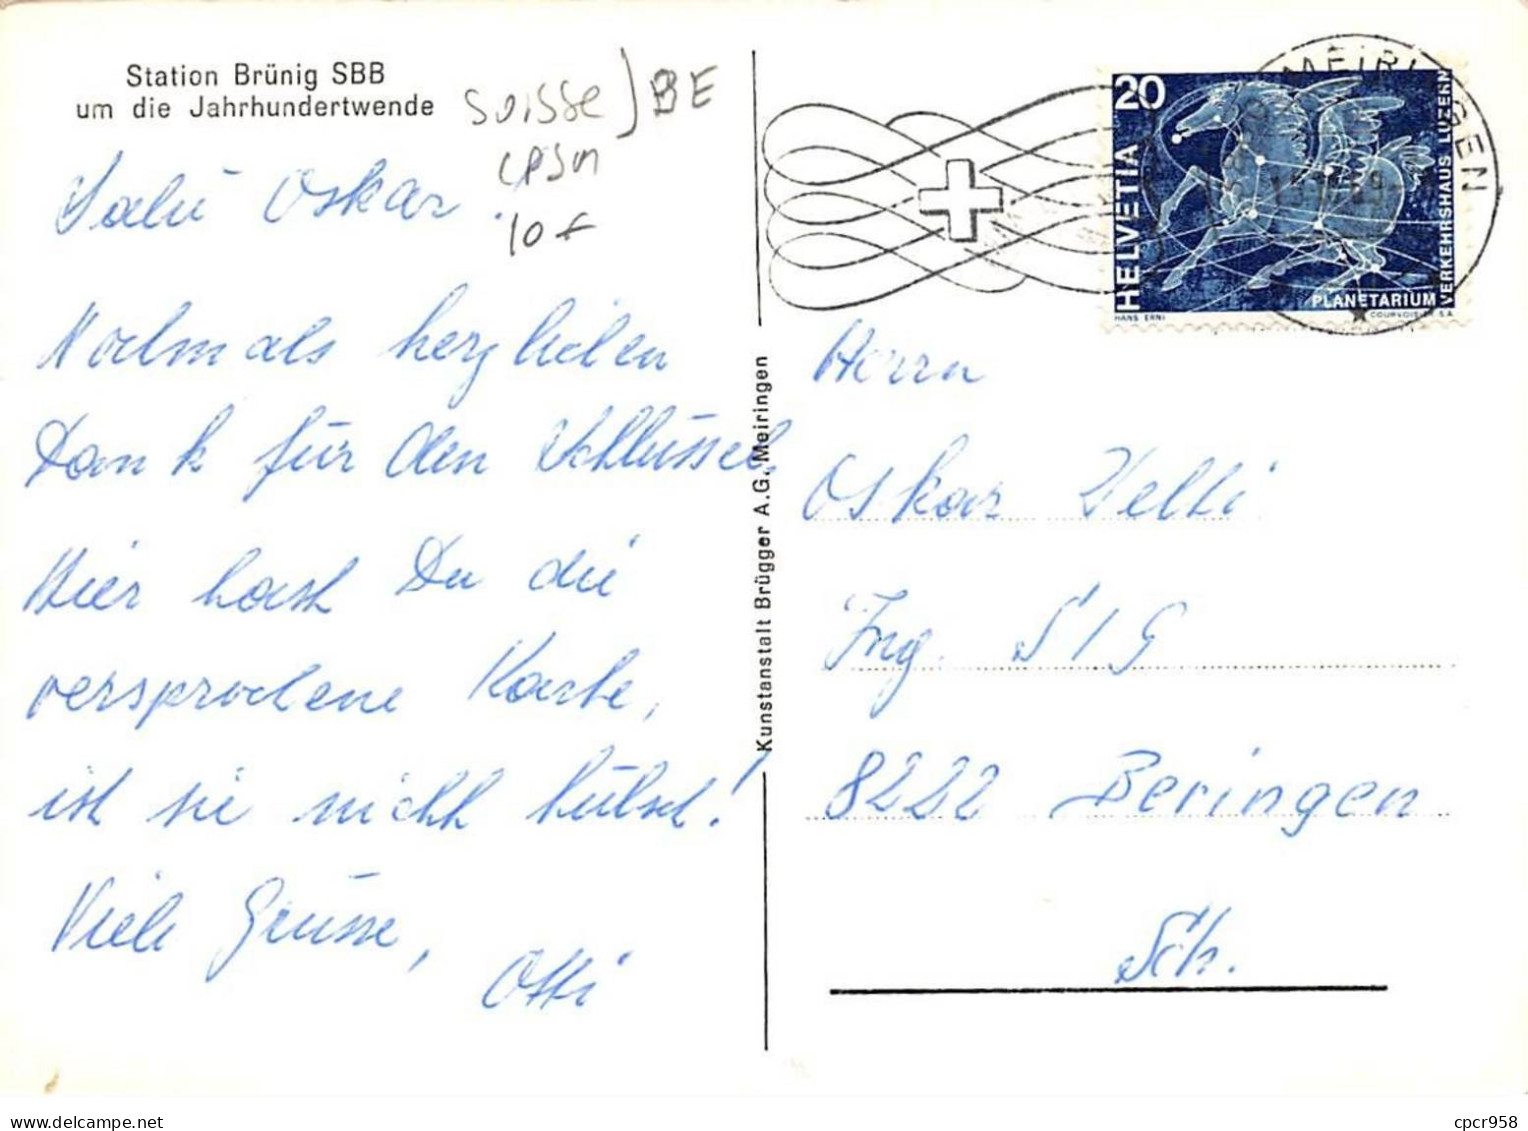 Station Brünig SBB
um die Jahrhundertwende
SUISSE) BE
CPSM
10F
Salü Oskar
Nochmals herzlichen
Dank für den Schlüssel,
Hier hast Du die
versprochene Karte,
ist sie nicht hübsch!
Viele Grüsse,
Otti
Kunstanstalt Brügger A.G. Meiringen
MEIRINGEN
20
HELVETIA
PLANETARIUM
VERKEHRSHAUS LUZERN
HANS ERNI
COURVOISIER S.A.
Herrn
Oskar Velti
Ing. SIG
8222 Beringen
Sch.
cpcr958